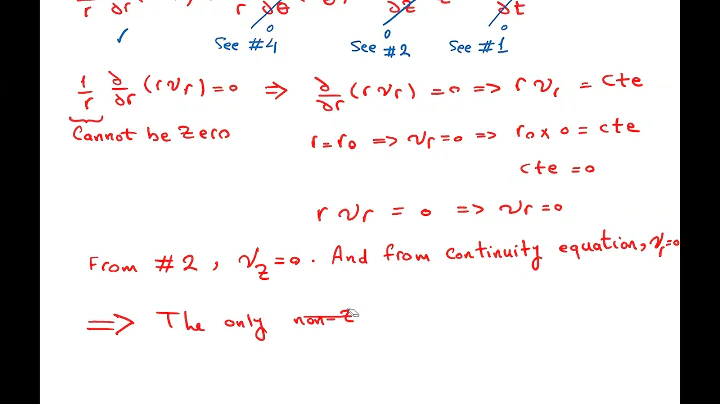 r ∂r r ∂θ ∂z ∂t
✓ 0 0 0
See #4 See #2 See #1
1/r ∂/∂r (r vr) = 0 ⇒ ∂/∂r (r vr) = 0 ⇒ r vr = cte
Cannot be zero
r = r0 ⇒ vr = 0 ⇒ r0 × 0 = cte
cte = 0
r vr = 0 ⇒ vr = 0
From #2, vz = 0. And from continuity equation, vr = 0
⇒ The only non-z